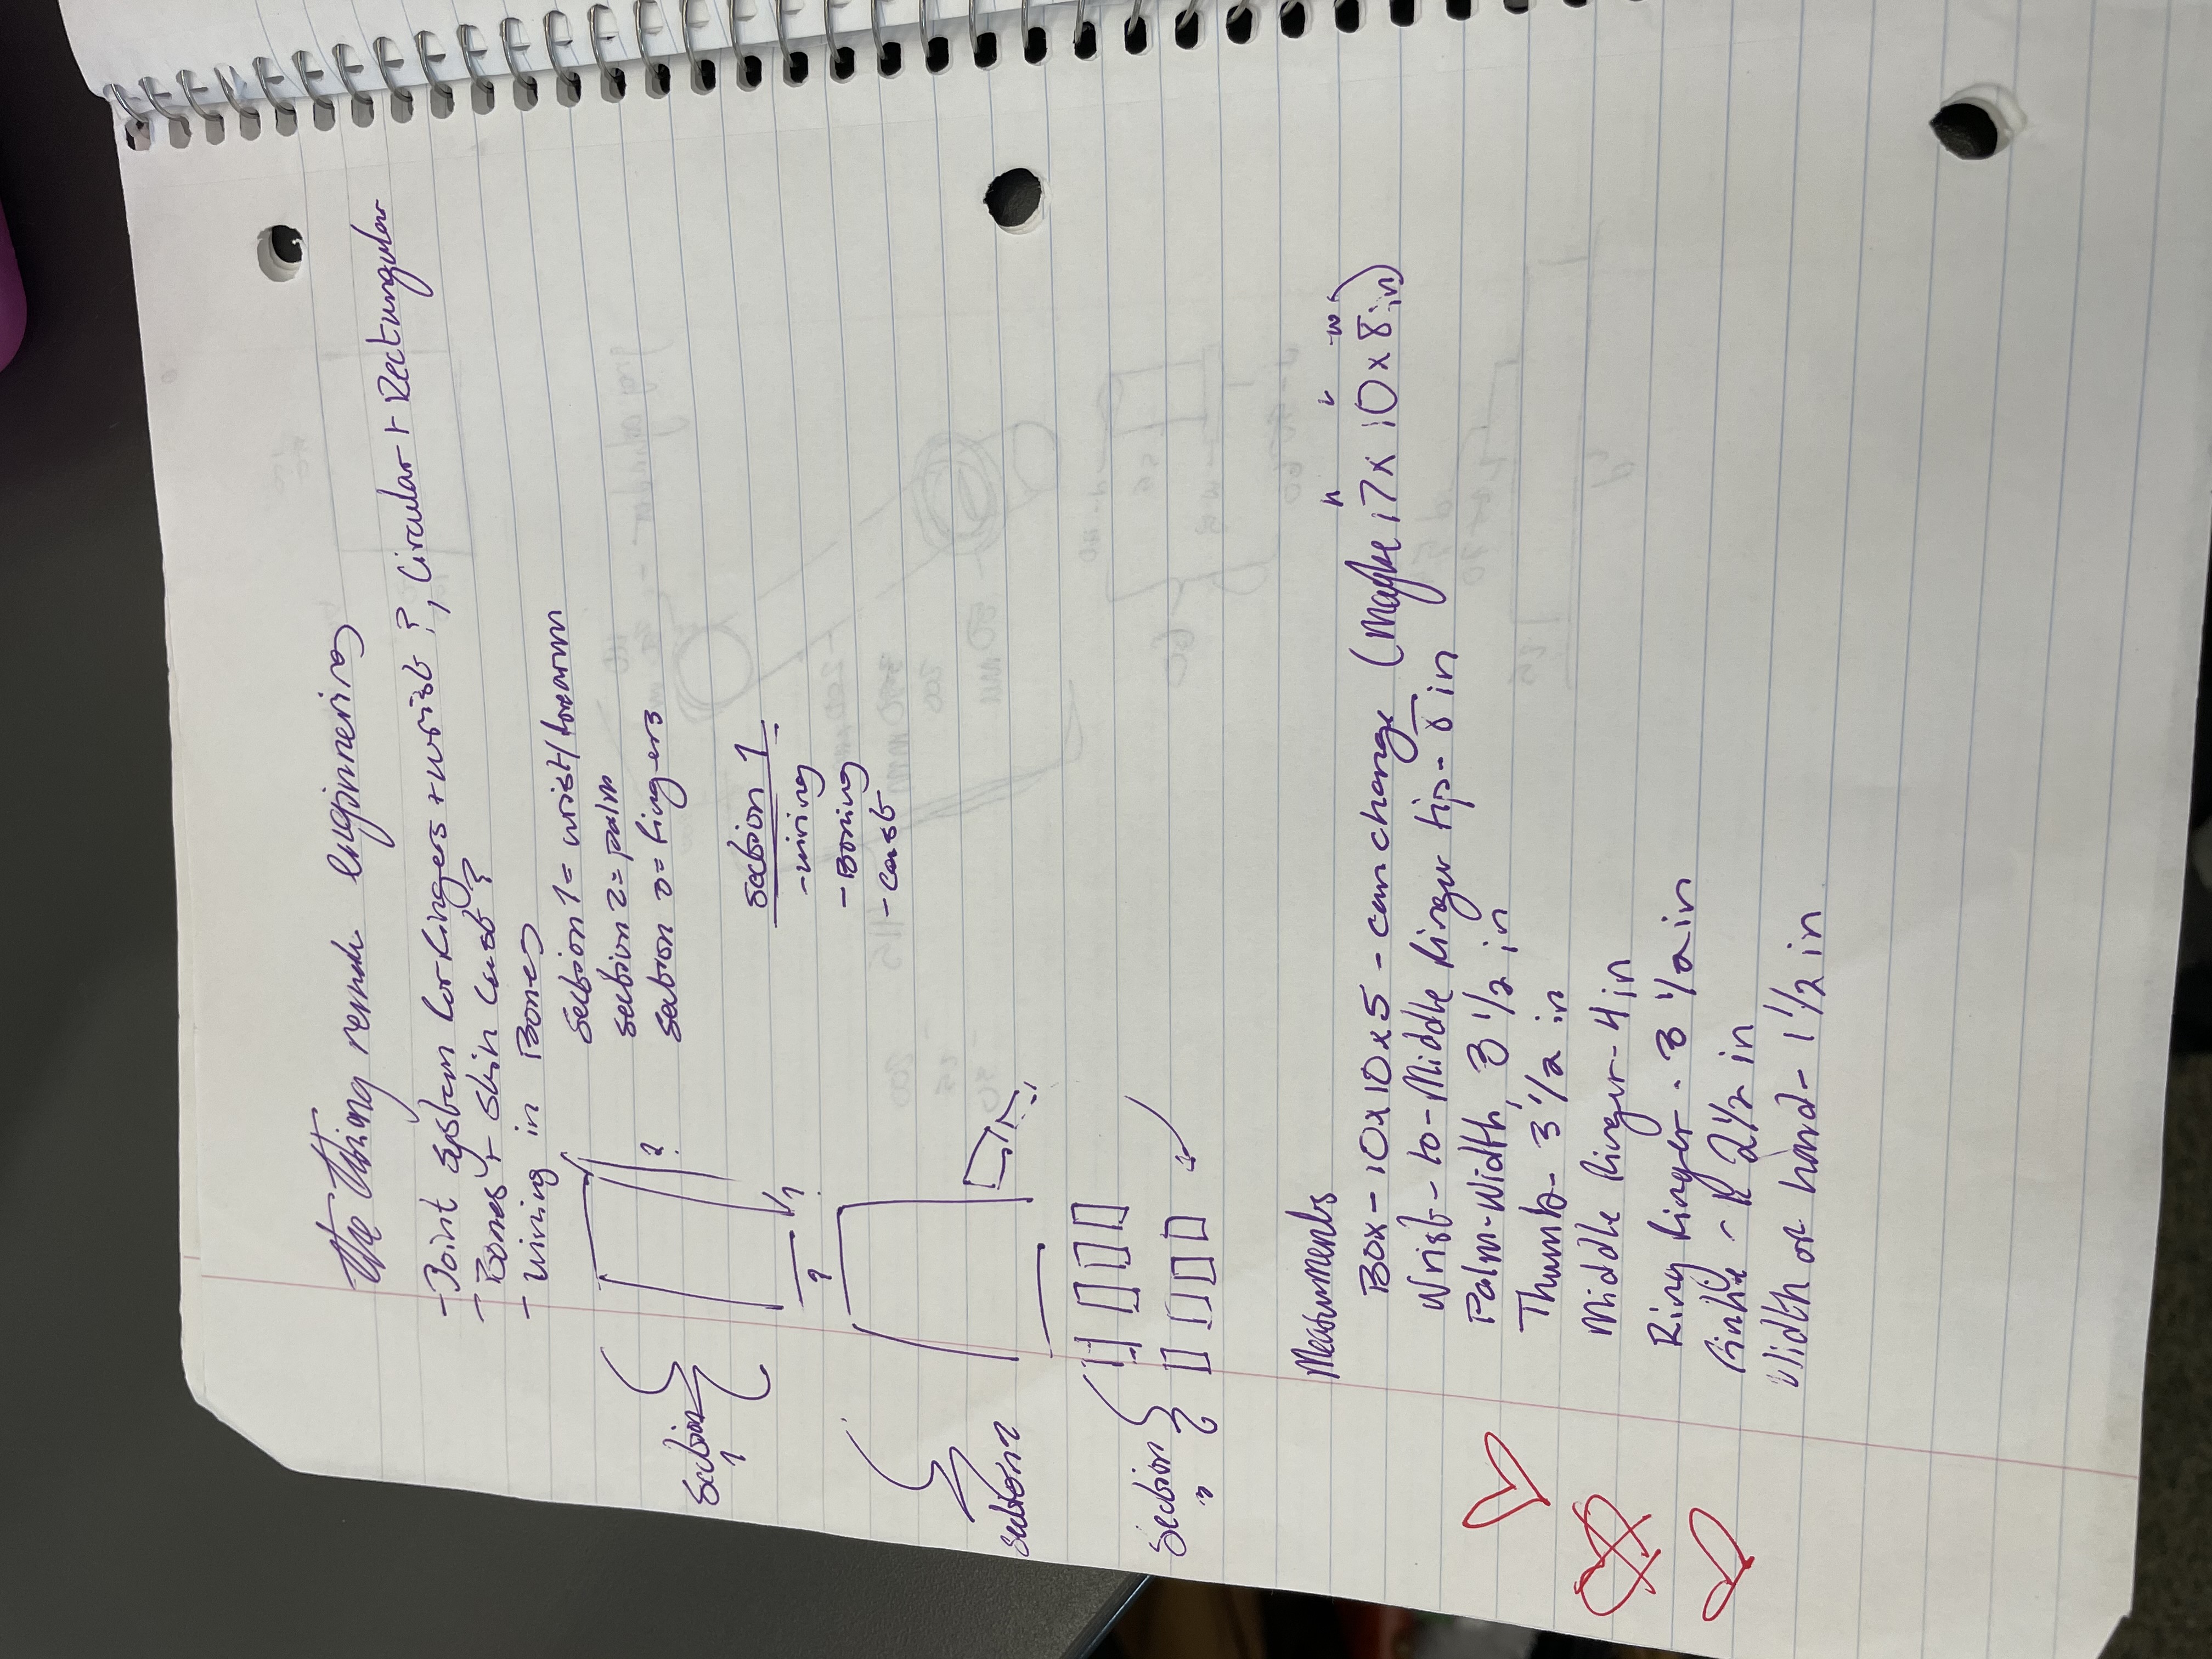 the Thing engineering
- Joint system for fingers + wrist ?, Circular + Rectungular
- Bones + Skin Cast ?
- wiring in Bones
Section 1 = wrist/forearm
Section 2 = palm
Section 3 = fingers
Section 1
?
?
?
Section 1
- wiring
- Boning
- cast
Section 2
Section 3
Measurments
H L W
Box - 10 x 10 x 5 - can change (Maybe 17 x 10 x 8 in)
Wrist - to - Middle finger tip - 8 in
Palm - Width, 3 1/2 in
Thumb - 3 1/2 in
Middle finger - 4 in
Ring finger - 3 1/2 in
Pinkie - 2 1/2 in
Width of hand - 1 1/2 in